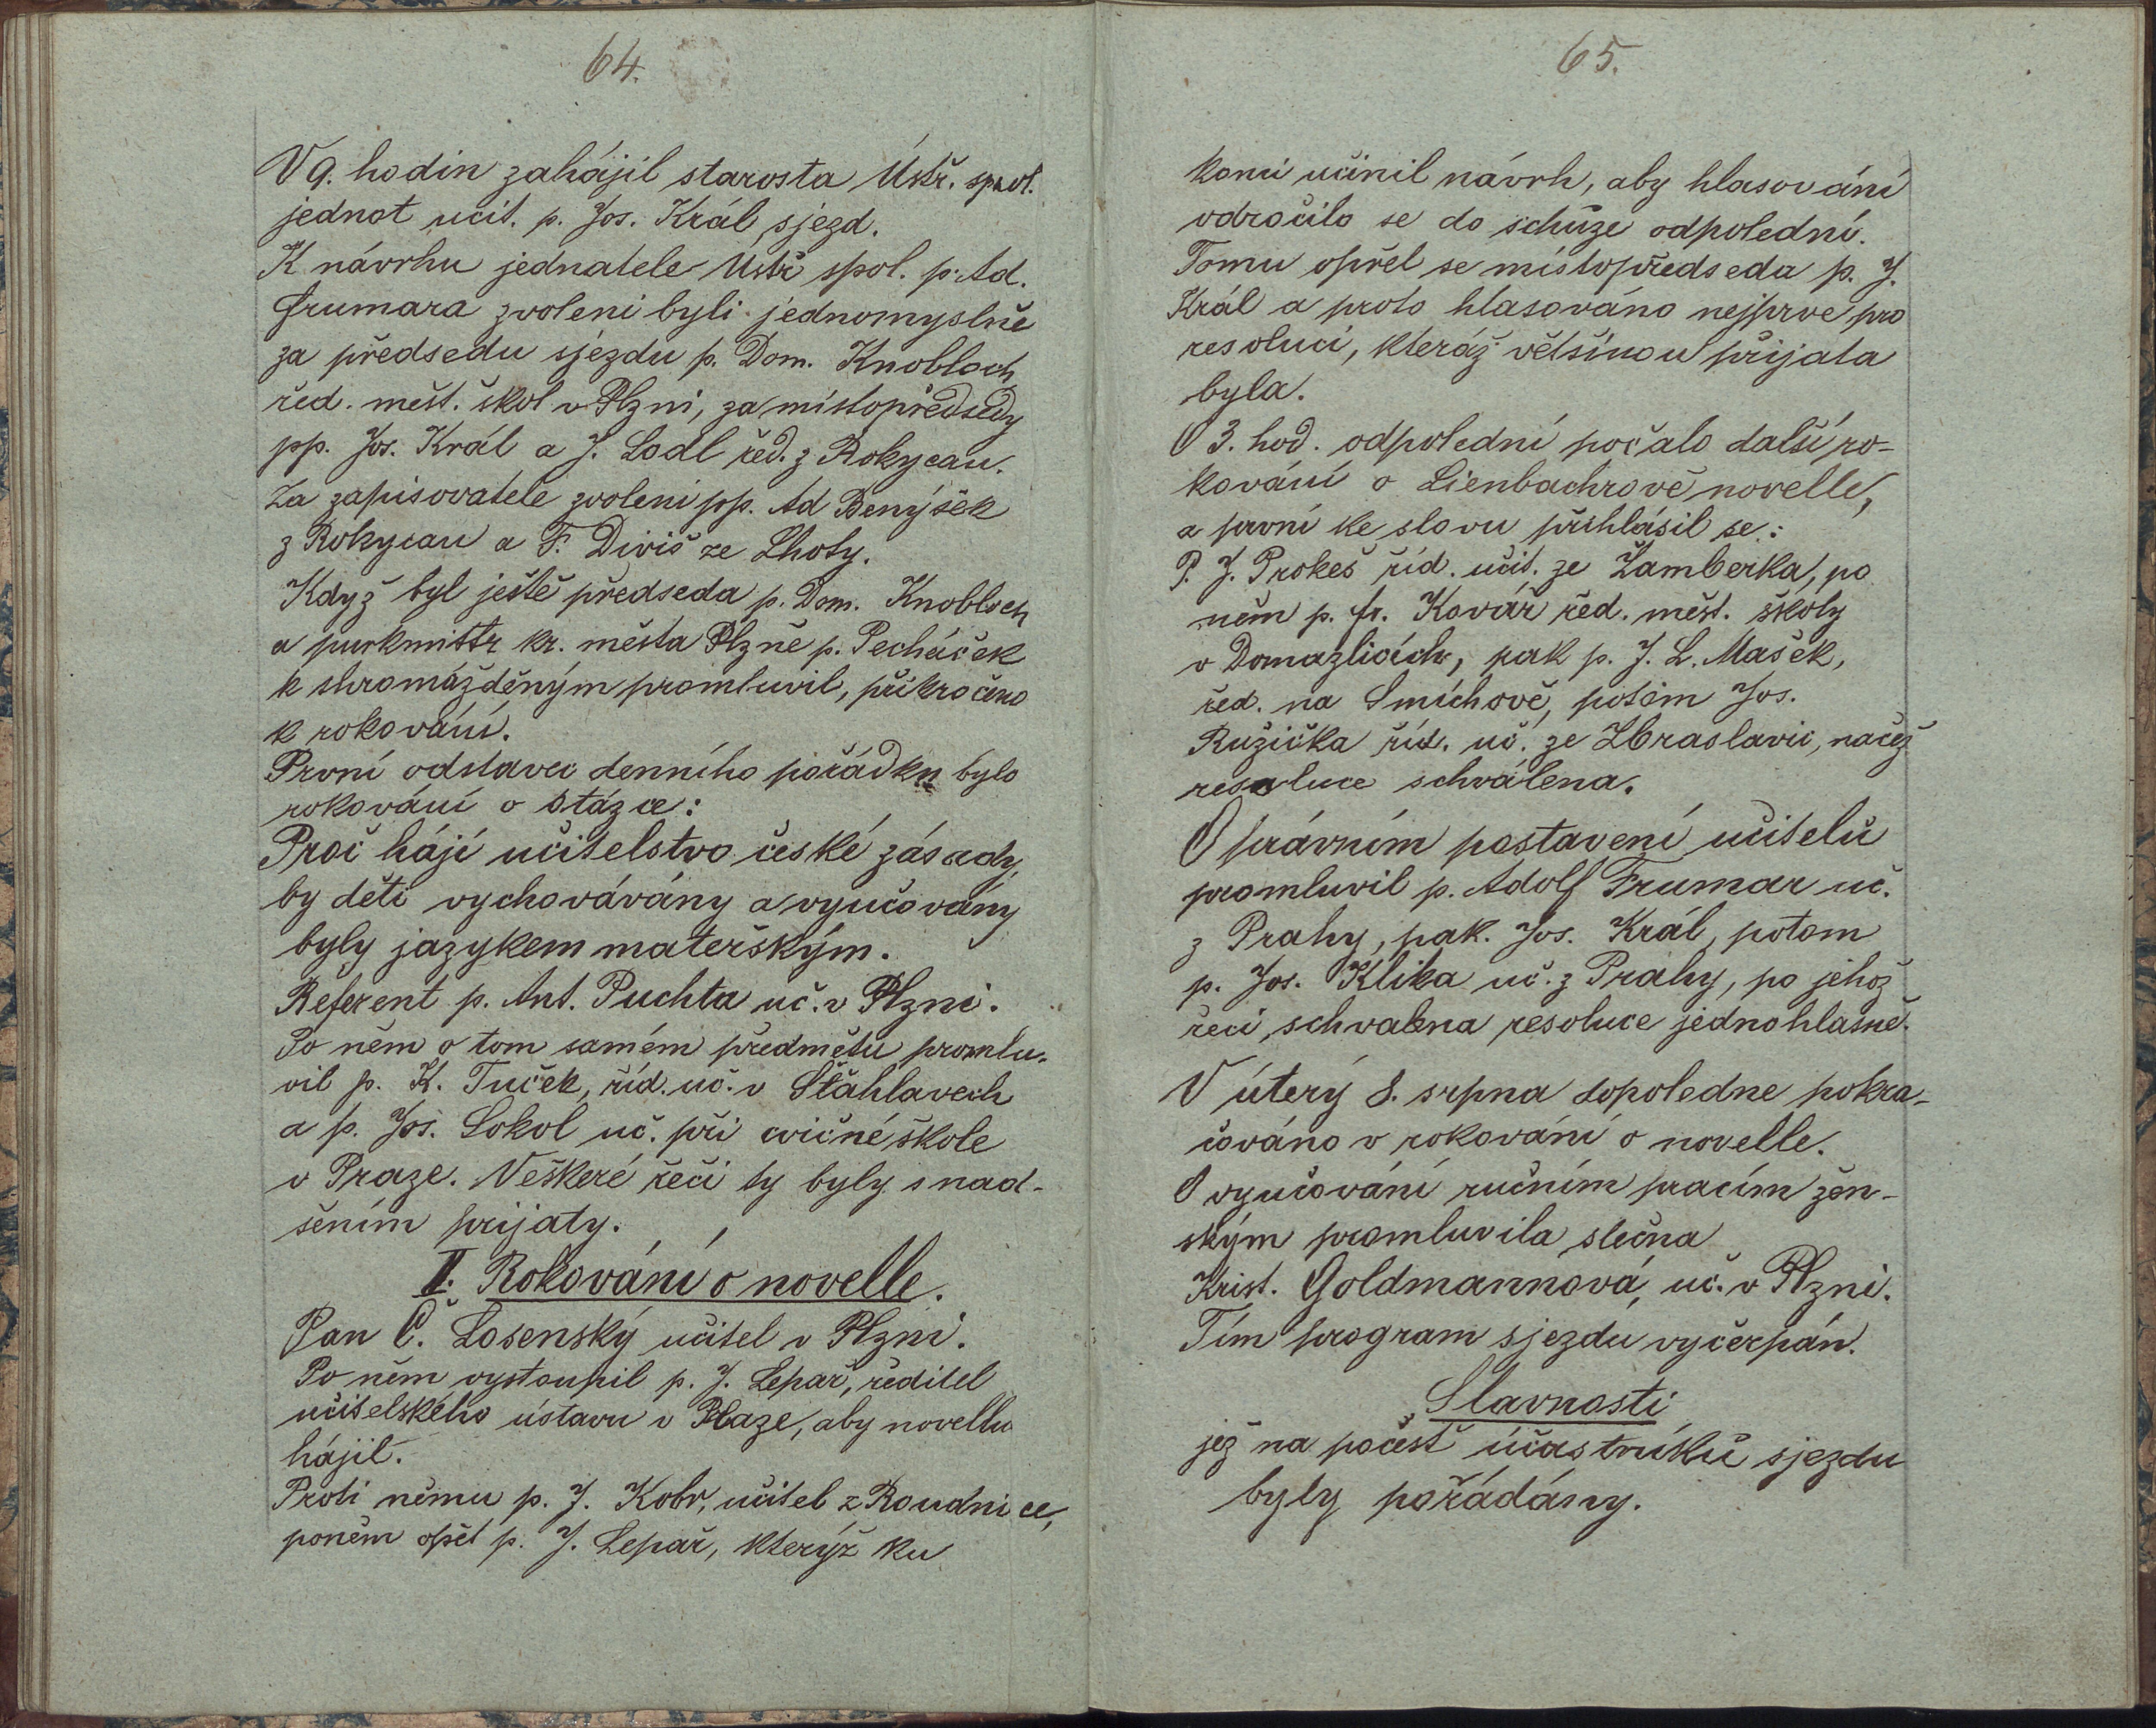 64.
V 9. hodin zahájil starosta Ústř. spol.
jednot učit. p. Jos. Král sjezd.
K návrhu jednatele Ústř spol. p. Ad.
Frumara zvoleni byli jednomyslně
za předsedu sjezdu p. Dom. Knobloch
řed. měšt. škol v Plzni, za místopředsedy
pp. Jos. Král a J. Lodl řed. z Rokycan.
Za zapisovatele zvoleni pp. Ad Benýšek
z Rokycan a F. Diviš ze Lhoty.
Když byl ještě předseda p. Dom. Knobloch
a purkmistr kr. města Plzně p. Pecháček
k shromážděným promluvil, přikročeno
k rokování.
První odstavec denního pořádku bylo
rokování o otázce:
Proč hájí učitelstvo české zásady,
by děti vychovávány a vyučovány
byly jazykem mateřským.
Referent p. Ant. Puchta uč. v Plzni.
Po něm o tom samém předmětu promlu-
vil p. K. Tuček, říd. uč. v Štáhlavech
a p. Jos. Sokol uč. při cvičné škole
v Praze. Veškeré řeči ty byly s nad-
šením prijaty.
II. Rokování o novelle.
Pan Č. Losenský učitel v Plzni.
Po něm vystoupil p. J. Lepař, ředitel
učitelského ústavu v Praze, aby novellu
hájil.
Proti němu p. J. Kobr, učitel z Roudnice,
poněm opět p. J. Lepař, kterýž ku
65.
konci učinil návrh, aby hlasování
odročilo se do schůze odpolední.
Tomu opřel se místopředseda p. J.
Král a proto hlasováno nejprve pro
resoluci, kteráž většinou přijata
byla.
O 3. hod. odpolední počalo další ro-
kování o Lienbachrově novelle,
a první ke slovu přihlásil se:
P. J. Prokeš říd. učit. ze Žamberka, po
něm p. fr. Kovář řed. měšt. školy
v Domažlicích, pak p. J. L. Mašek,
řed. na Smíchově, potom Jos.
Ružička říd. uč. ze Zbraslavic, načež
resoluce schválena.
O právním postavení učitelů
promluvil p. Adolf Frumar uč.
z Prahy, pak. Jos. Král, potom
p. Jos. Klika uč. z Prahy, po jehož
řeci, schvalena resoluce jednohlasně.
V úterý 8. srpna dopoledne pokra-
čováno v rokování o novelle.
O vyučování ručním pracím žen-
ským promluvila slečna
Krist. Goldmannová, uč. v Plzni.
Tím program sjezdu vyčerpán.
Slavnosti
jež na počest účastníků sjezdu
byly pořádány.